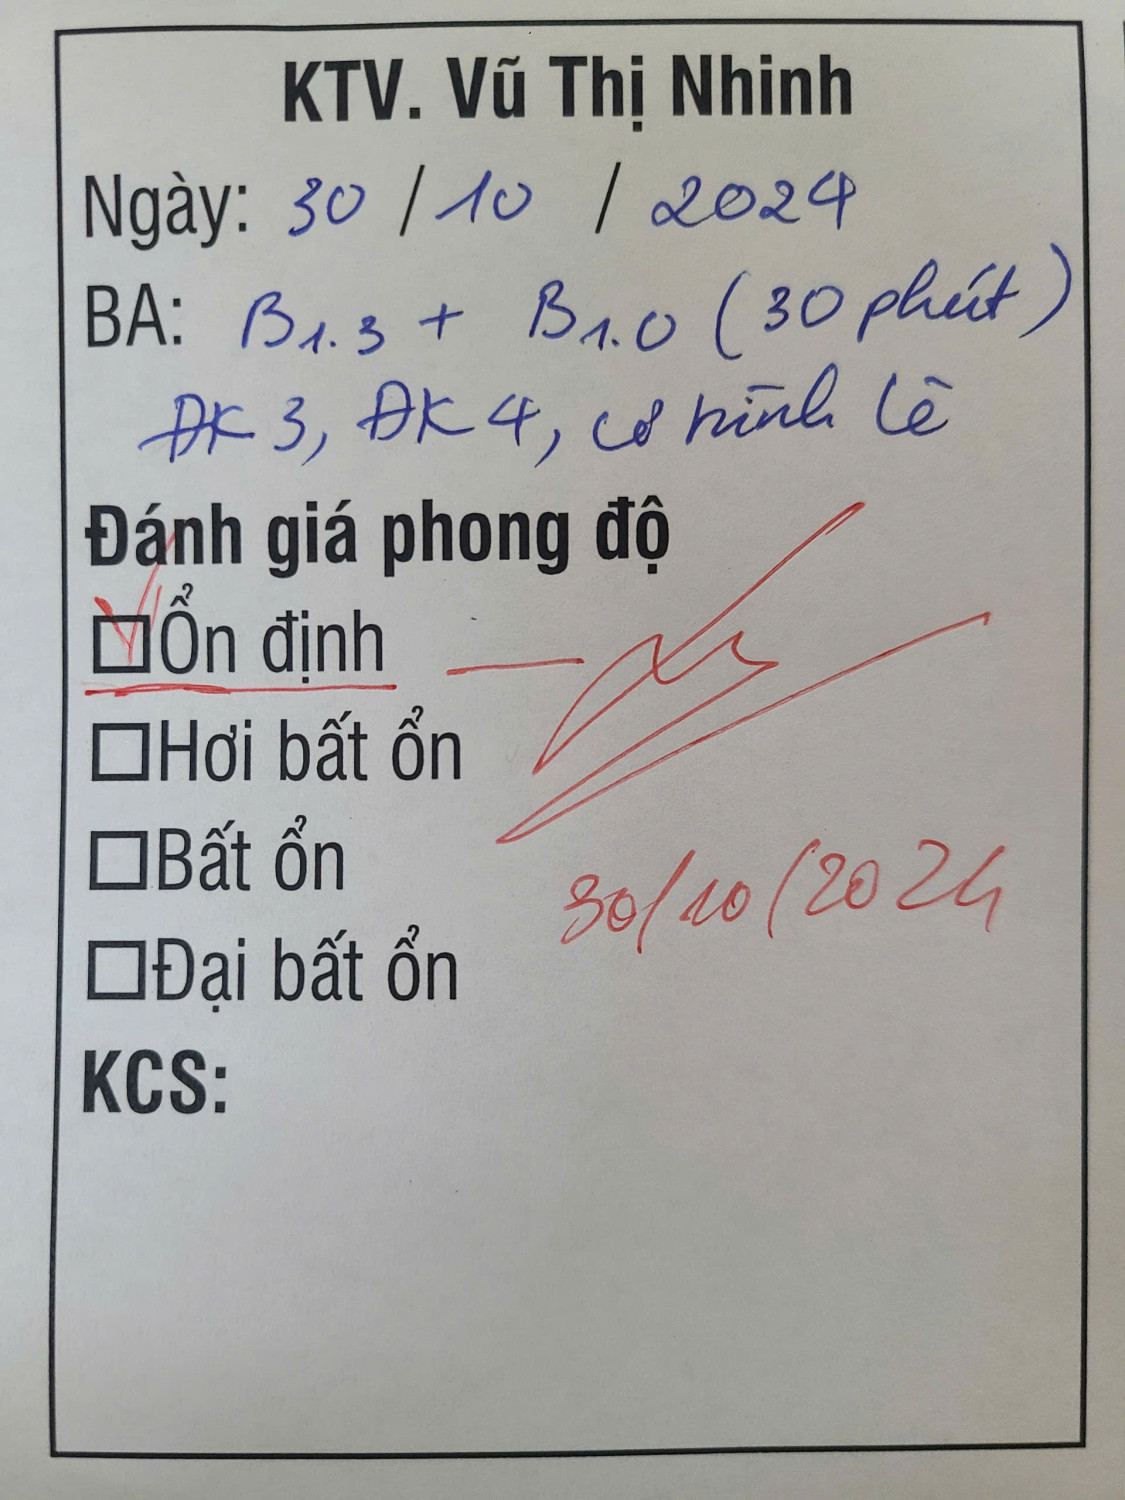 KTV. Vũ Thị Nhinh
Ngày: 30 / 10 / 2024
BA: B1.3 + B1.0 (30 phút)
ĐK 3, ĐK 4, cơ hình lê
Đánh giá phong độ
Ổn định
Hơi bất ổn
Bất ổn
Đại bất ổn
30/10/2024
KCS: